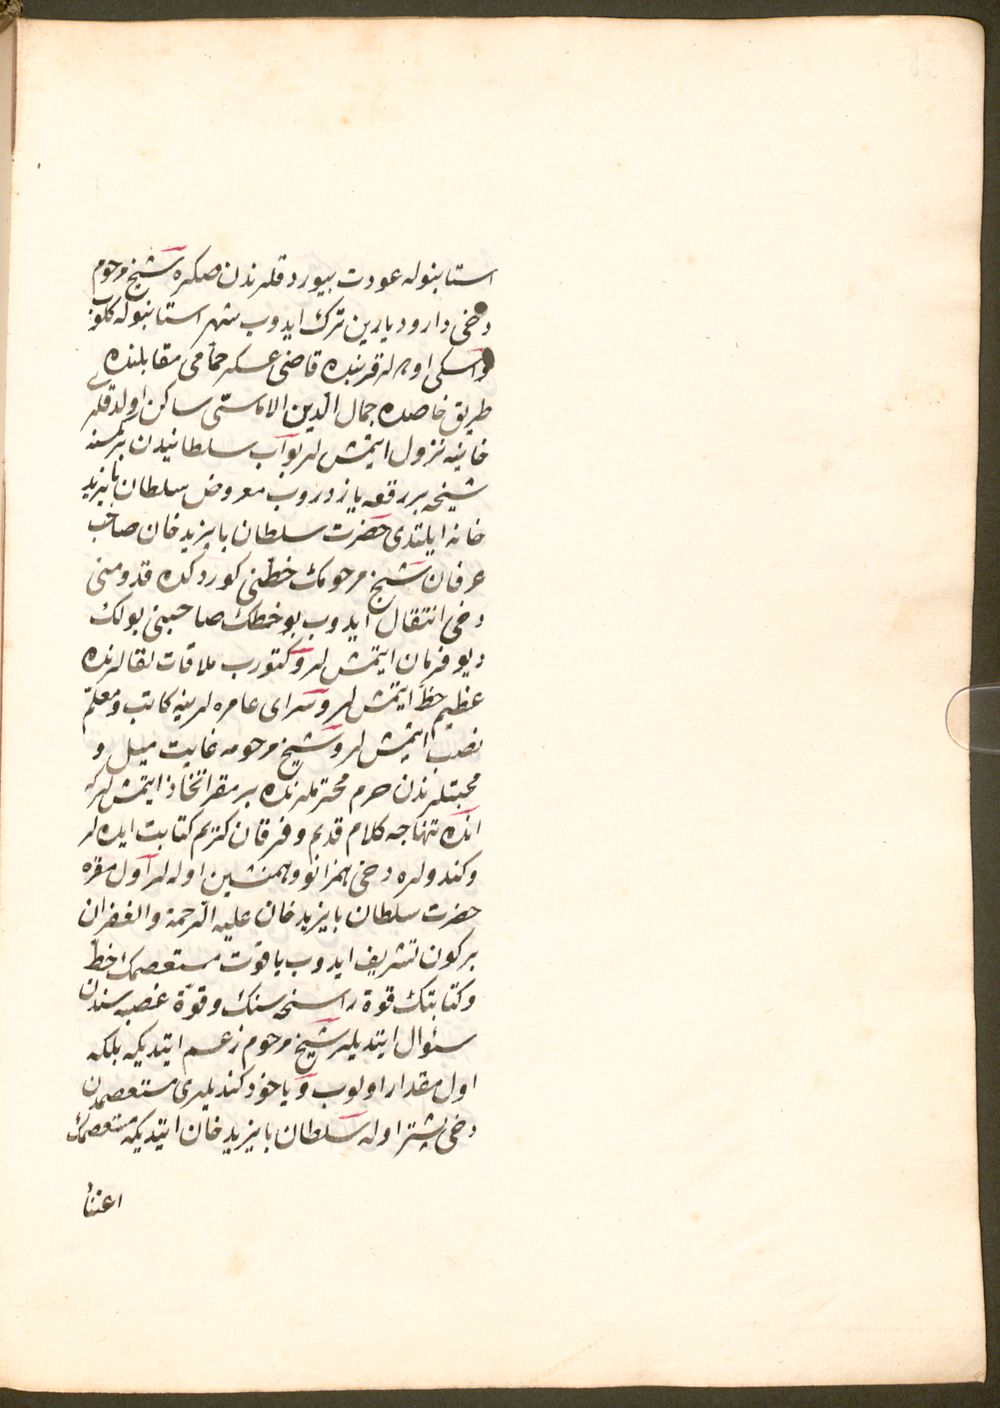 استانبوله عودت بيوردقلرندن صكره شيخ مرحوم
دخى دار و ديارين ترك ايدوب شهر استانبوله كلوب
و اسكى اوطه لر قربنده قاضى عسكر حمامى مقابلنده
طريق خاصده جمال الدين الاماسى ساكن اولدقلرى
خانيه نزول ايتمش لر بواب سلطانيدن بر كمسنه
شيخه بر رقعه يازدروب معروض سلطان بايزيد
خانه ايلتدى حضرت سلطان بايزيد خان صاحب
عرفان شيخ مرحومك خطنى كوردكده قدومنى
دخى انتقال ايدوب بو خطك صاحبنى بولك
ديو فرمان ايتمش لر و كتورب ملاقات لقالرنده
عظيم حظ ايتمش لر و سراى عامره لرينه كاتب و معلم
نصب ايتمش لر و شيخ مرحومه غايت ميل و
محبتلرندن حرم محترملرنده بر مقر اتخاذ ايتمش لر كه
انده تنهاجه كلام قديم و فرقان كريم كتابت ايده لر
و كندولره دخى همزانو و همنشين اوله لر اول مقره
حضرت سلطان بايزيد خان عليه الرحمة والغفران
بر كون تشريف ايدوب ياقوت مستعصمك خط
و كتابتك قوة راسخه سنك و قوة غضبه سندن
سئوال ايتديلر شيخ مرحوم زعم ايتديكه بلكه
اول مقدار اولوب و يا خود كنديلرى مستعصمدن
دخى پيشتر اوله سلطان بايزيد خان ايتديكه مستعصمك
اعتنا